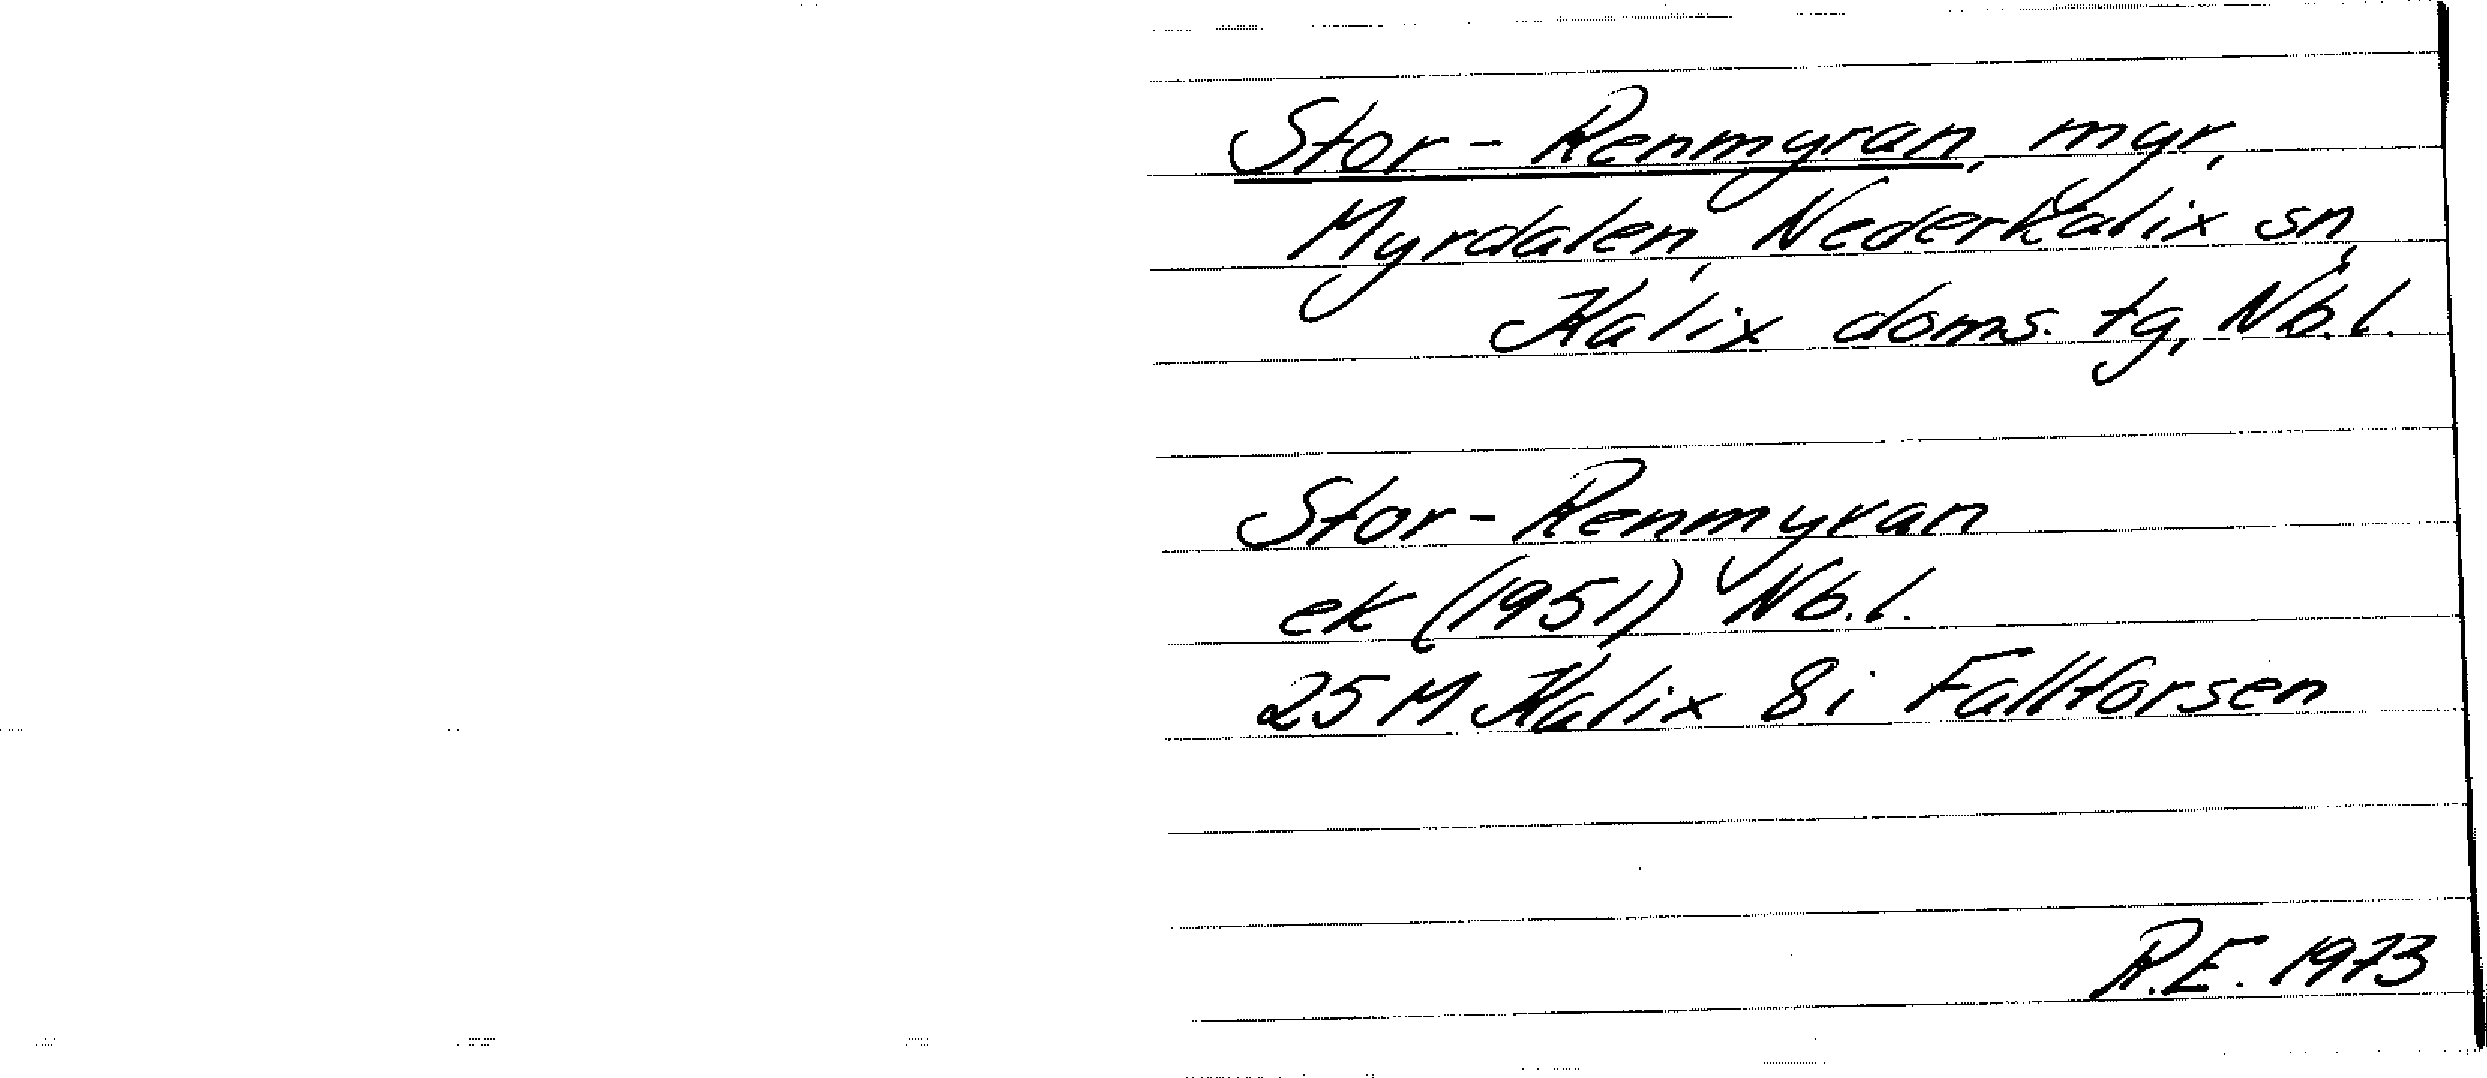 Stor-Renmyran, myr,
Myrdalen, Nederkalix sn,
Kalix doms. tg, Nb.l.
Stor-Renmyran
ek (1951) Nb.l.
25 M Kalix 8i Fallforsen
R.E. 1973